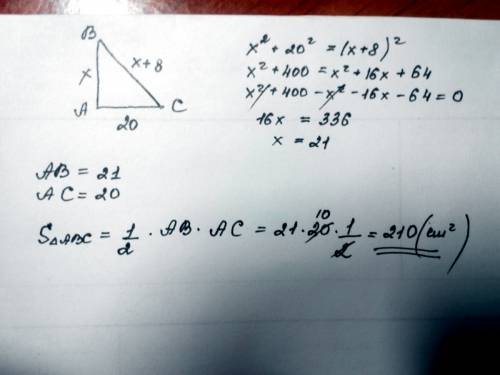 B
x
x+8
A
C
20
x² + 20² = (x+8)²
x² + 400 = x² + 16x + 64
x² + 400 - x² - 16x - 64 = 0
16x = 336
x = 21
AB = 21
AC = 20
S△ABC = 1/2 · AB · AC = 21 · 20 10 · 1/2 = 210 (cm²)